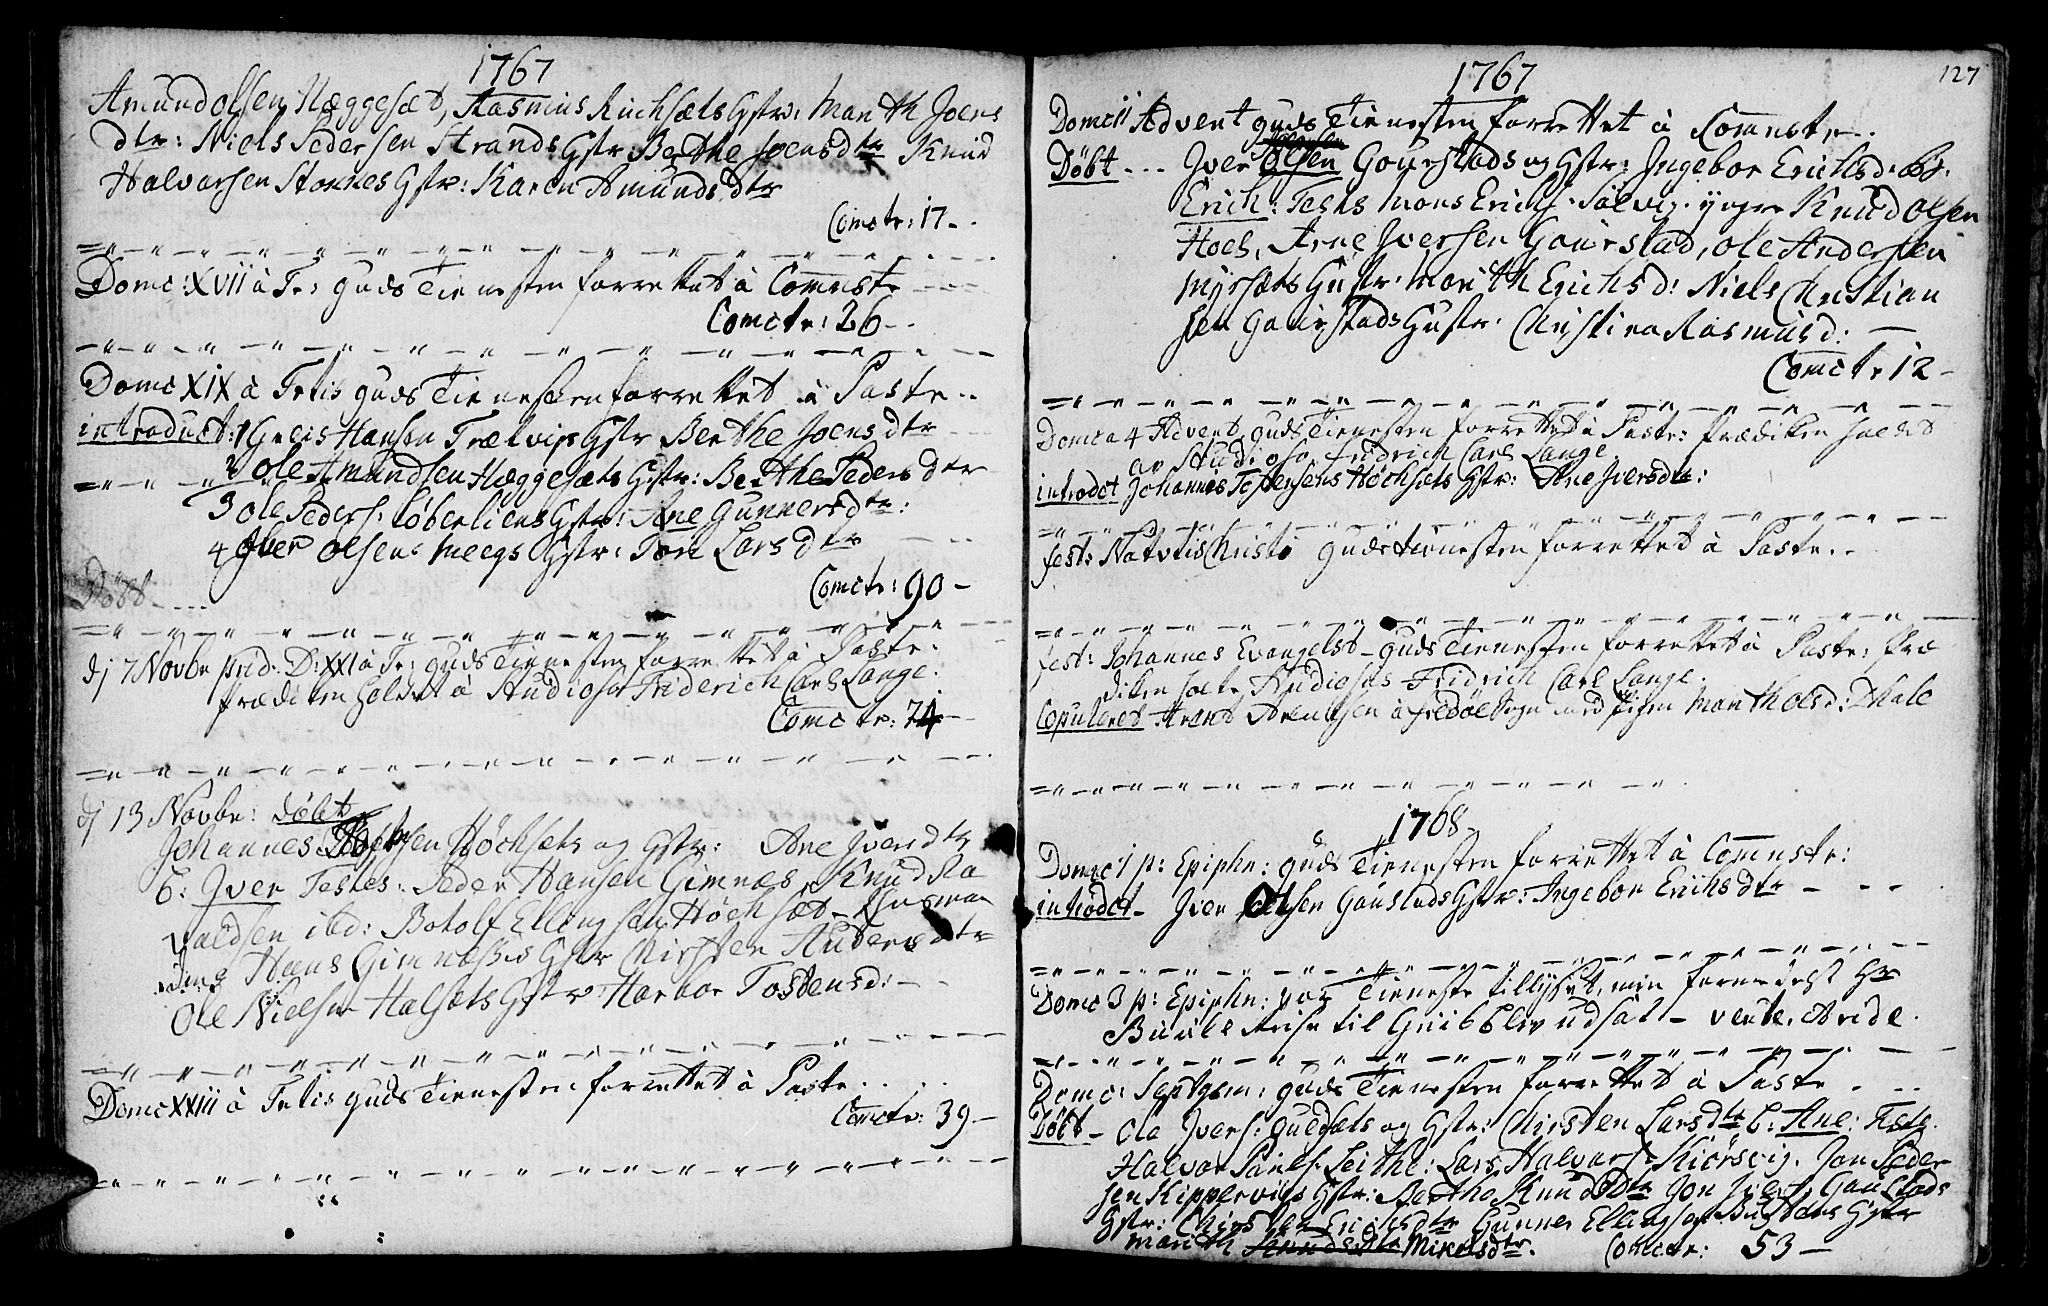 1767
Amund Olsen Hæggesæt, Rasmus Ruchsæts Gstr: Marith Joens
dtr: Niels Pedersen Strands Gstr: Berthe Joensdtr Knud
Halvorsen Stornes Gstr: Karen Amundsdtr
Comctr: 17 -
Domc: XVII à Tr: Guds Tienesten forrettet à Comnstr
Comctr: 26 -
Domc XIX à Trtis Guds Tienesten forrettet à Pastr
introduct: 1 Hansen Gstr Berthe Joensdtr
2 Ole Amundsen Hæggesæts Gstr: Berthe Pedersdtr
3 Ole Peders: Løberliens Gstr: Ane Gunnersdtr:
4 Iver Olsens Meegs Gstr: Tore Larsdtr
Døbt
Comctr: 90 -
dj 7 Novbr prid: D: XXI à Tr: Guds Tienesten forrettet à Pastr:
Prædiken holdet à Studioso Friderich Carl Lange:
Comctr: 74 -
dj 13 Novbr: Døbt
Johannes Høchsæts og Gstr: Ane Iversdtr
b: Iver Testes: Peder Hansen Gimnæs, Knud Ra
valdsen ibd: Botolf Ellingsen Høchsæt
Hans Gimnæsses Gstr Chirsten Andersdtr
Ole Nielsen Halsæts Gstr Harbor Tostensd:
Domc XXIII à Trtis Guds Tienesten forrettet à Pastr
Comctr: 39 -
1767
127
Domc 11 Advent Guds Tienesten forrettet à Comnstr
Døbt - - - Iver Olsen Gourstads og Gstr: Ingebor Erichsd: b:
Erich: Test: Mons Erichs: Sølvig. yngre Knud Olsen
Hoel, Arne Iversen Gourstad, Ole Andersen
Myrsæts Gustr: Marith Erichsd: Niels Christian
sen Gourstads Gustr: Christina Rasmusd:
Comctr 12 -
Domca 4 Advent Guds Tienesten forrettet à Pastr: Prædiken holdet
av Studioso Fridrich Carl Lange.
introdct Johannes Tostensens Høchsæts Gstr: Ane Iversdtr:
fest: Nativtis Christi Guds tienesten forrettet à Pastr.
fest: Johannes Evangelst - Guds Tienesten forrettet à Pastr: Præ
diken holt Studiosus Fridrich Carl Lange.
Copuleret Arent Arentsen à Fredøe Sogn med Pigen Marith Olsd: Dhale
1768
Domc 1 p: Epiphn: Guds Tienesten forrettet à Comnstr:
introdct - Iver Olsen Goustads Gstr: Ingebor Erichsdtr
Domc 3 p: Epiphn: var Tieneste tillyset, men formedelst Hr
Reise til udsat -
Domc: Septgsm: Guds Tienesten forrettet à Pastr
Døbt - Ole Ivers: Guldsæts og Gstr: Chirsten Larsdtr b: Ane: Test:
Halvor Pauls: Leithe: Lars Halvors: Kiørsvig. Jon Peder
sen Kippervigs Gstr: Berthe Knudsdtr Jon Ivers: Goustads
Gstr: Chirsten Erichsdtr Gunner Ellingsen Bugtens Gstr
Marith Knudsdtr Mikelsdtr. Comctr: 53 -